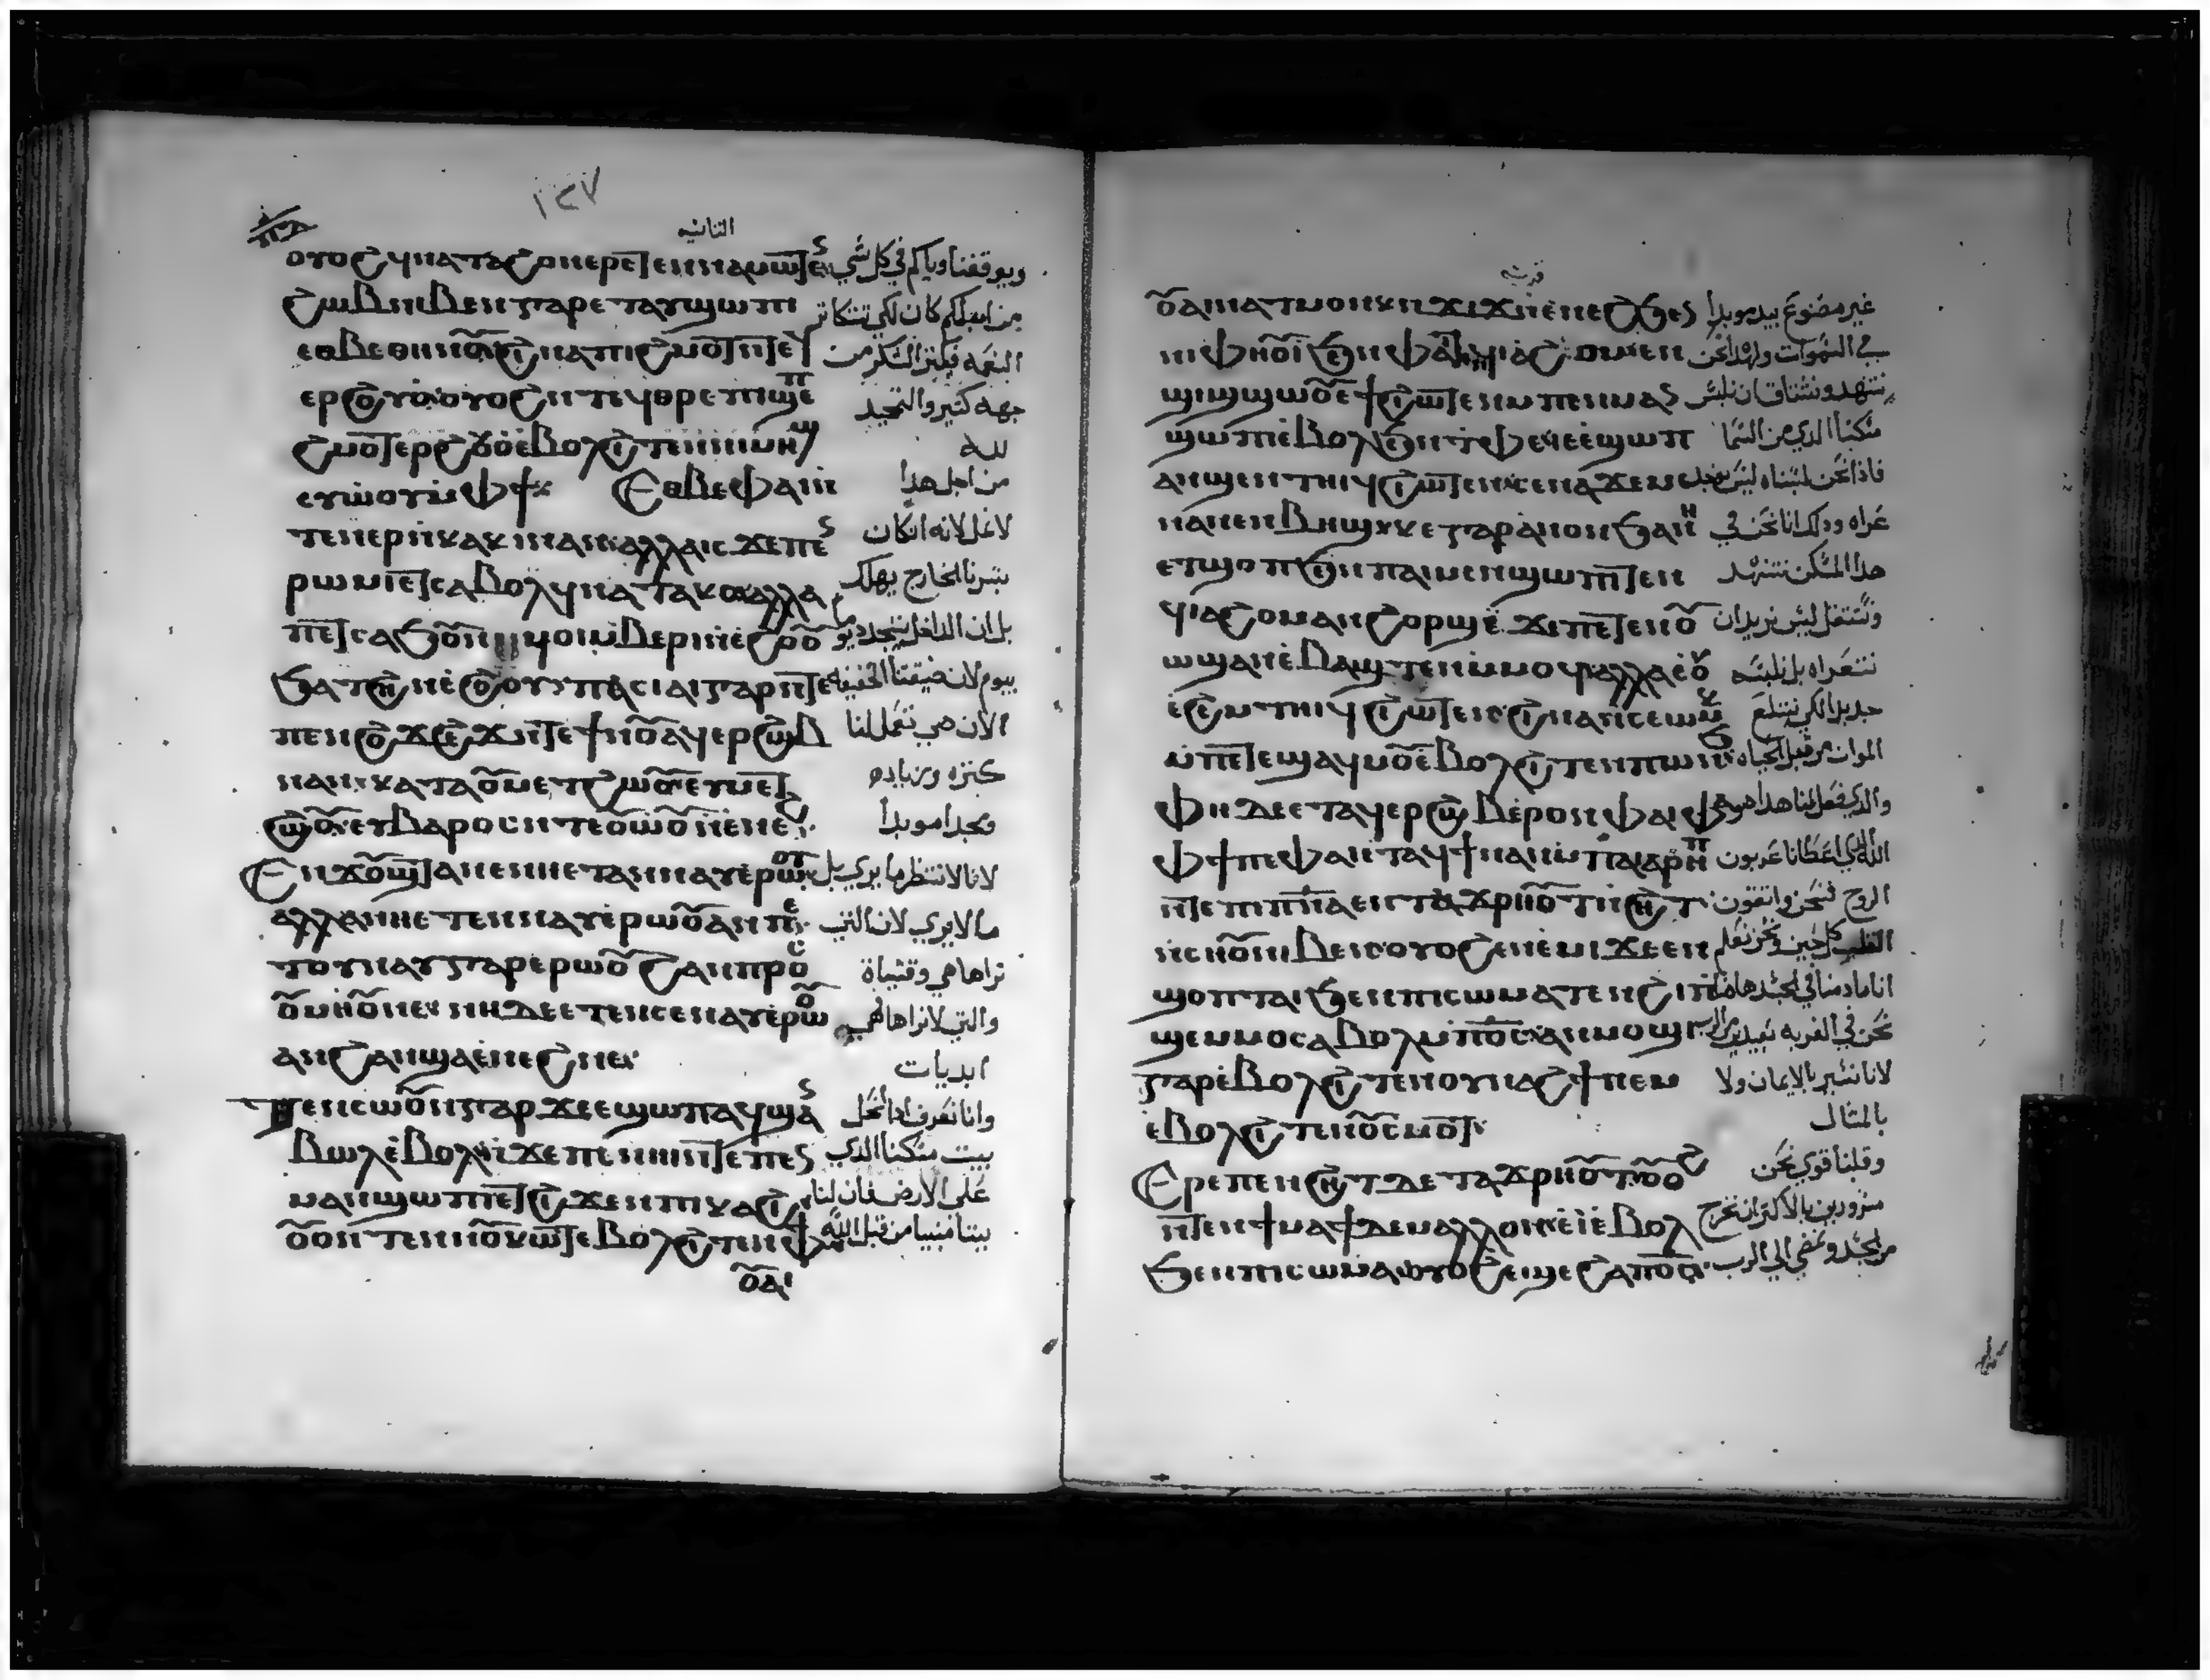 ١٤٧
الثانيه
ⲟⲩⲟϩ ϥⲛⲁⲧⲁϩⲟⲛ ⲉⲣⲉⲧⲉⲛ ⲛⲉⲙⲱⲧⲉⲛ ويوقفنا وياكم في كل شي
ϩⲱⲃ ⲛⲓⲃⲉⲛ ⲅⲁⲣ ⲉⲧⲁⲩϣⲱⲡⲓ من اجلكم كان لكي تتكاتر
ⲉⲑⲃⲉ ⲑⲏⲛⲟⲩ ϩⲓⲛⲁ ⲡⲓϩⲙⲟⲧ النعمه فيكتر الشكر من
ⲉⲣϩⲟⲩⲟ ⲟⲩⲟϩ ⲛⲧⲉϥⲑⲣⲉ ⲡⲓϣⲉⲡ جهه كثير والتمجيد
ϩⲙⲟⲧ ⲉⲣϩⲟⲩⲟ ⲉⲃⲟⲗ ϩⲓⲧⲉⲛ ⲛⲓⲙⲏϣ لله
ⲉⲩⲱⲟⲩ ⲙⲫϯ ⲉⲑⲃⲉ ⲫⲁⲓ من اجل هدا
ⲧⲉⲛⲉⲣⲛⲕⲁⲕⲓⲛ ⲁⲛ ⲁⲗⲗⲁ ⲓⲥϫⲉ ⲡⲉⲛ لا نمل لانه ان كان
ⲣⲱⲙⲓ ⲉⲧⲥⲁⲃⲟⲗ ϥⲛⲁⲧⲁⲕⲟ ⲁⲗⲗⲁ بشرنا الخارج يهلك
ⲡⲉⲧⲥⲁϧⲟⲩⲛ ϥⲟⲓ ⲙⲃⲉⲣⲓ ⲛⲉϩⲟⲟⲩ بل ان الداخل يتجدد يوما
ϧⲁⲧϩⲏ ⲛⲉϩⲟⲟⲩ ⲡⲓⲁⲥⲓⲁⲓ ⲅⲁⲣ ⲛⲧⲉ بيوم لان ضيقتنا الخفيفه
ⲡⲉⲛϩⲟϫϩⲉϫ ⲛⲧⲉ ϯⲛⲟⲩ ⲁϥⲉⲣϩⲱⲃ الان هي تعمل لنا
ⲛⲁⲛ ⲕⲁⲧⲁ ⲟⲩⲙⲉⲧϩⲟⲩⲟ ⲉⲩⲙⲉⲧ كتره وزياده
ϩⲟⲩⲟ ⲉⲩⲃⲁⲣⲟⲥ ⲛⲧⲉ ⲟⲩⲱⲟⲩ ⲛⲉⲛⲉϩ مجدا موبدا
ⲉⲛϫⲟⲩϣⲧ ⲁⲛ ⲉⲛⲏ ⲉⲧⲉⲛⲛⲁⲩ ⲉⲣⲱⲟⲩ لاننا لا ننتظر ما يري بل
ⲁⲗⲗⲁ ⲛⲏ ⲉⲧⲉⲛⲛⲁⲩ ⲉⲣⲱⲟⲩ ⲁⲛ ⲛⲏ ⲉ ما لا يري لان التي
ⲧⲟⲩⲛⲁⲩ ⲅⲁⲣ ⲉⲣⲱⲟⲩ ϩⲁⲛⲡⲣⲟⲥ نراها هي وقتياة
ⲟⲩⲛⲟⲩ ⲛⲉ ⲛⲏ ⲇⲉ ⲉⲧⲉⲛⲥⲉⲛⲁⲩ ⲉⲣⲱⲟⲩ والتي لا نراها فهي
ⲁⲛ ϩⲁⲛϣⲁⲉⲛⲉϩ ⲛⲉ ابديات
ⲧⲉⲛⲥⲱⲟⲩⲛ ⲅⲁⲣ ϫⲉ ⲉϣⲱⲡ ⲁϥϣⲁⲛ وانا نعرف اذا انحل
ⲃⲱⲗ ⲉⲃⲟⲗ ⲛϫⲉ ⲡⲉⲛⲏⲓ ⲛⲧⲉ ⲡⲉⲛ بيت مسكننا الذي
ⲙⲁⲛϣⲱⲡⲓ ⲉⲧϩⲓϫⲉⲛ ⲡⲓⲕⲁϩⲓ علي الارض فان لنا
ⲟⲩⲟⲛⲧⲉⲛ ⲛⲟⲩⲕⲱⲧ ⲉⲃⲟⲗ ϩⲓⲧⲉⲛ ⲫϯ بيتا مبنيا من قبل الله
ⲟⲩⲏⲓ
قرنتيه
ⲟⲩⲁⲑⲙⲟⲛⲕ ⲛϫⲓϫ ⲛⲉⲛⲉϩ ϧⲉⲛ غير مصنوع بيد موبدا
ⲛⲓⲫⲏⲟⲩⲓ ϧⲉⲛ ⲫⲁⲓ ⲧⲉⲛϥⲓⲁϩⲟⲙ ⲉⲛ في السموات ولهدا نحن
ϣⲓϣϣⲱⲟⲩ ⲉϯϩⲓⲱⲧⲉⲛ ⲙⲡⲉⲛⲙⲁⲛ نتنهد ونشتاق ان نلبس
ϣⲱⲡⲓ ⲉⲃⲟⲗ ϧⲉⲛ ⲧⲫⲉ ⲉϣⲱⲡ مسكننا الدي من السما
ⲁⲛϣⲉⲛⲧⲏⲓϥ ϩⲓⲱⲧⲉⲛ ⲥⲉⲛⲁϫⲉⲙⲉⲛ فاذا نحن لبسناه ليس نوجد
ⲁⲛ ⲉⲛⲃⲏϣ ⲕⲉ ⲅⲁⲣ ⲁⲛⲟⲛ ϧⲁ ⲛⲏ عراه ودلك انا نحن في
ⲉⲧϣⲟⲡ ϧⲉⲛ ⲡⲁⲓⲙⲁⲛϣⲱⲡⲓ ⲧⲉⲛ هدا المسكن نتنهد
ϥⲓⲁϩⲟⲙ ⲉⲛϩⲟⲣϣ ϫⲉ ⲡⲉⲧⲉⲛⲟⲩ ونتتقل ليس نريد ان
ⲱϣ ⲁⲛ ⲉⲃⲁϣⲧⲉⲛ ⲙⲙⲟϥ ⲁⲗⲗⲁ ⲉⲟⲩ نتعراه بل نلبسه
ⲉϩⲉⲙ ⲧⲏⲓϥ ϩⲓⲱⲧⲉⲛ ϩⲓⲛⲁ ⲛⲥⲉⲱⲙⲕ جديدا لكي يبتلع
ⲙⲡⲉⲧⲉϣⲁϥⲙⲟⲩ ⲉⲃⲟⲗ ϩⲓⲧⲉⲛ ⲡⲱⲛϧ الموات من قبل الحياه
ⲫⲏ ⲇⲉ ⲉⲧⲁϥⲉⲣϩⲱⲃ ⲉⲣⲟⲛ ⲉⲫⲁⲓ والدي فعل لنا هدا هو
ⲫϯ ⲡⲉ ⲫⲁⲓ ⲉⲧⲁϥϯ ⲛⲁⲛ ⲙⲡⲓⲁⲣⲏⲃ الله الدي اعطانا عربون
ⲛⲧⲉ ⲡⲓⲡⲛⲁ ⲉⲛⲧⲁϫⲣⲏⲟⲩⲧ ⲛϩⲏⲧ الروح فنحن واتقون
ⲛⲥⲏⲟⲩ ⲛⲓⲃⲉⲛ ⲟⲩⲟϩ ⲉⲛⲉⲙⲓ ϫⲉ ⲉⲛ القلب كل حين ونحن نعلم
ϣⲟⲡ ⲧⲁⲓ ϧⲉⲛ ⲡⲓⲥⲱⲙⲁ ⲧⲉⲛϩⲓⲡ انا مادمنا في الجسد هاهنا
ϣⲉⲙⲙⲟ ⲥⲁⲃⲟⲗ ⲙⲡⲟⲥ ⲁⲛⲙⲟϣⲓ نحن في الغربه بعيدين من الرب
ⲅⲁⲣ ⲉⲃⲟⲗ ϩⲓⲧⲉⲛ ⲟⲩⲛⲁϩϯ ⲛⲉⲙ لانا نسير بالايمان ولا
ⲉⲃⲟⲗ ϩⲓⲧⲉⲛ ⲟⲩⲥⲙⲟⲧ ⲁⲛ بالمثال
ⲉⲣⲉ ⲡⲉⲛϩⲏⲧ ⲇⲉ ⲧⲁϫⲣⲏⲟⲩⲧ ⲟⲩⲟϩ وقلبنا قوي نحن
ⲧⲉⲛϯⲙⲁϯ ⲇⲉ ⲙⲁⲗⲗⲟⲛ ⲉⲓ ⲉⲃⲟⲗ مسرورين بالاكتر ان نخرج
ϧⲉⲛ ⲡⲓⲥⲱⲙⲁ ⲟⲩⲟϩ ⲉϣⲉ ϩⲁ ⲡⲟⲥ من الجسد ونمضي الي الرب